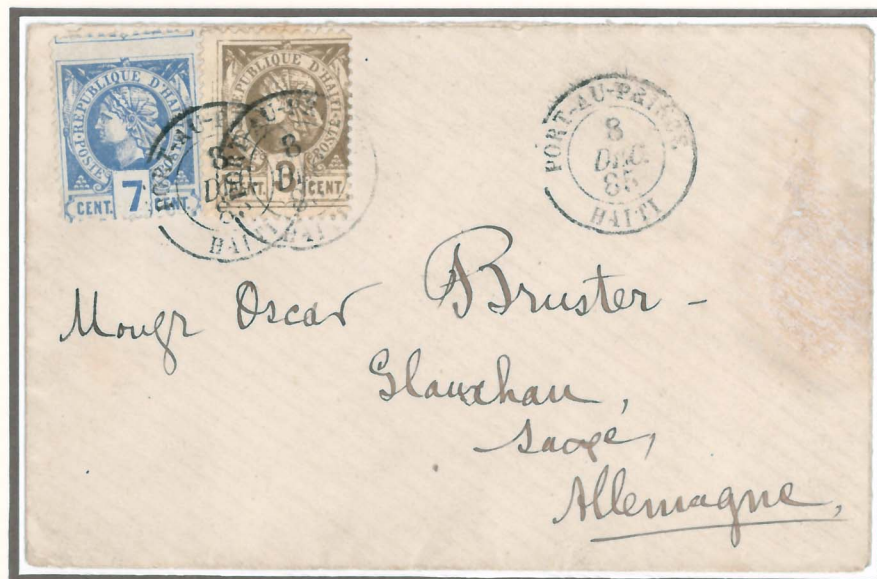 REPUBLIQUE D'HAITI
POSTE
CENT. 7 CENT.
REPUBLIQUE D'HAITI
POSTE
CENT. 3 CENT.
PORT-AU-P
8
DEC
HAITI
PORT-AU-P
8
HAITI
PORT-AU-PRINCE
8
DEC.
85
HAITI
Oscar Bruster -
Glauchau,
Saxe,
Allemagne,